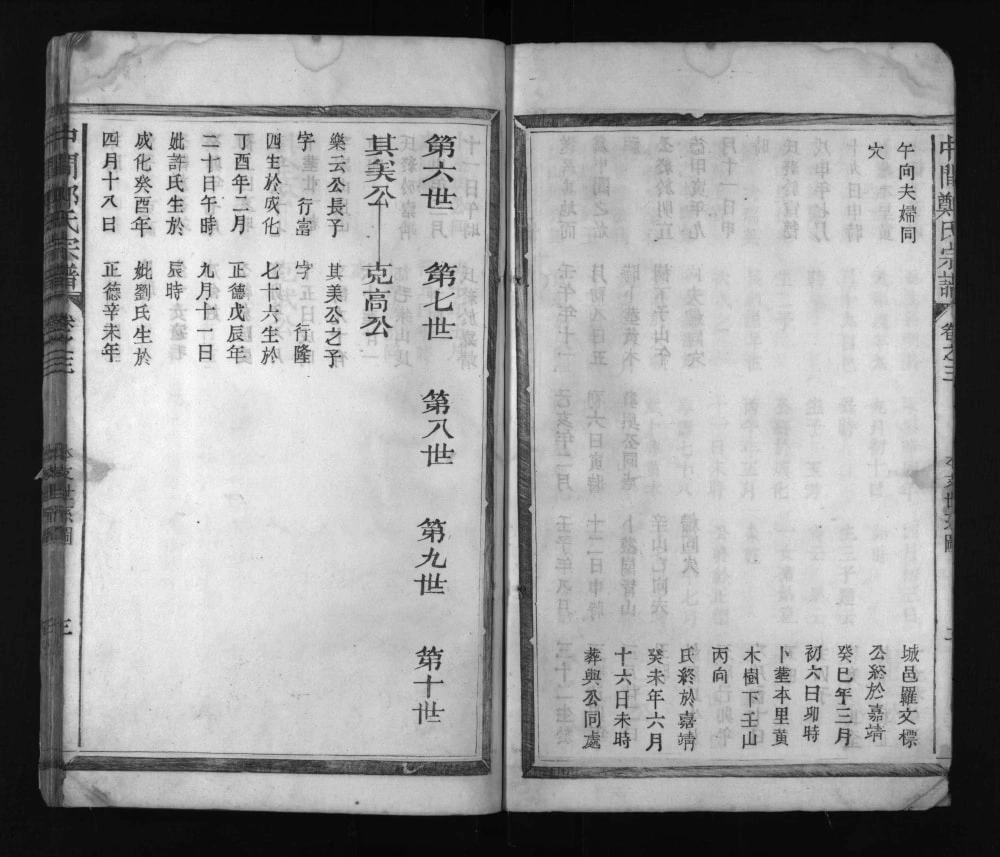 中閭鄭氏宗譜
卷之三
本支世系圖
午向夫婦同
穴
城邑羅文標
公終於嘉靖
癸巳年三月
初六日卯時
卜塟本里黃
木樹下壬山
丙向
氏終於嘉靖
癸未年六月
十六日未時
葬與公同處
第六世
第七世
第八世
第九世
第十世
其美公
克高公
樂云公長子
字 行富
四生於成化
丁酉年二月
二十日午時
妣許氏生於
成化癸酉年
四月十八日
其美公之子
字 行隆
七十六生於
正德戊辰年
九月十一日
辰時
妣劉氏生於
正德辛未年
中閭鄭氏宗譜
卷之三
本支世系圖
三